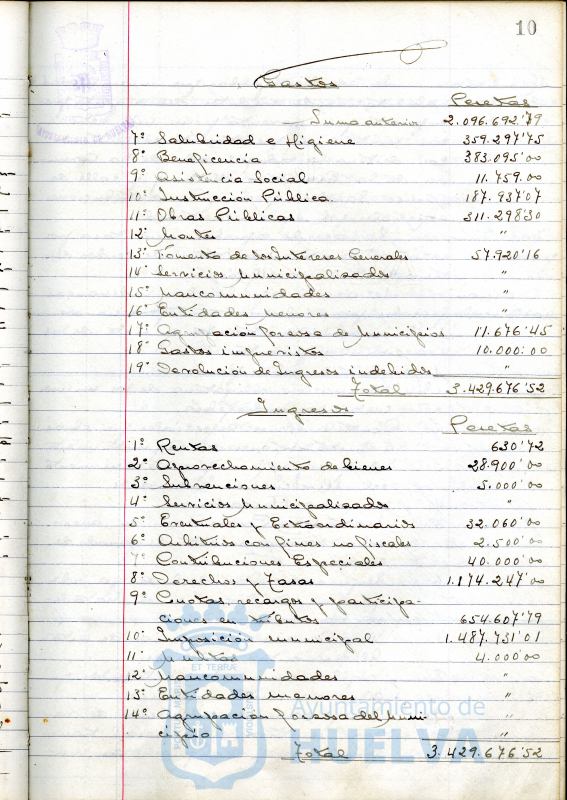 10
Gastos
Pesetas
Suma anterior 2.096.692'79
7º Salubridad e Higiene 359.297'75
8º Beneficencia 383.095'00
9º Asistencia Social 11.759.00
10º Instrucción Pública 187.937'07
11º Obras Públicas 311.298'30
12º Montes "
13º Fomento de los Intereses Generales 57.920'16
14º Servicios Municipalizados "
15º Mancomunidades "
16º Entidades menores "
17º Agrupación forosa de Municipios 11.676'45
18º Gastos imprevistos 10.000'00
19º Devolución de Ingresos indebidos "
Total 3.429.676'52
Ingresos
Pesetas
1º Rentas 630'72
2º Aprovechamiento de bienes 28.900'00
3º Subvenciones 5.000'00
4º Servicios Municipalizados "
5º Eventuales y Extraordinarios 32.060'00
6º Arbitrios con fines no fiscales 2.500'00
7º Contribuciones Especiales 40.000'00
8º Derechos y Tasas 1.174.247'00
9º Cuotas, recargos y participa-
ciones en tributos 654.607'79
10º Imposición municipal 1.487.731'01
11º Multas 4.000'00
12º Mancomunidades "
13º Entidades menores "
14º Agrupación forosa del Muni-
cipio "
Total 3.429.676'52
Ayuntamiento de
HUELVA